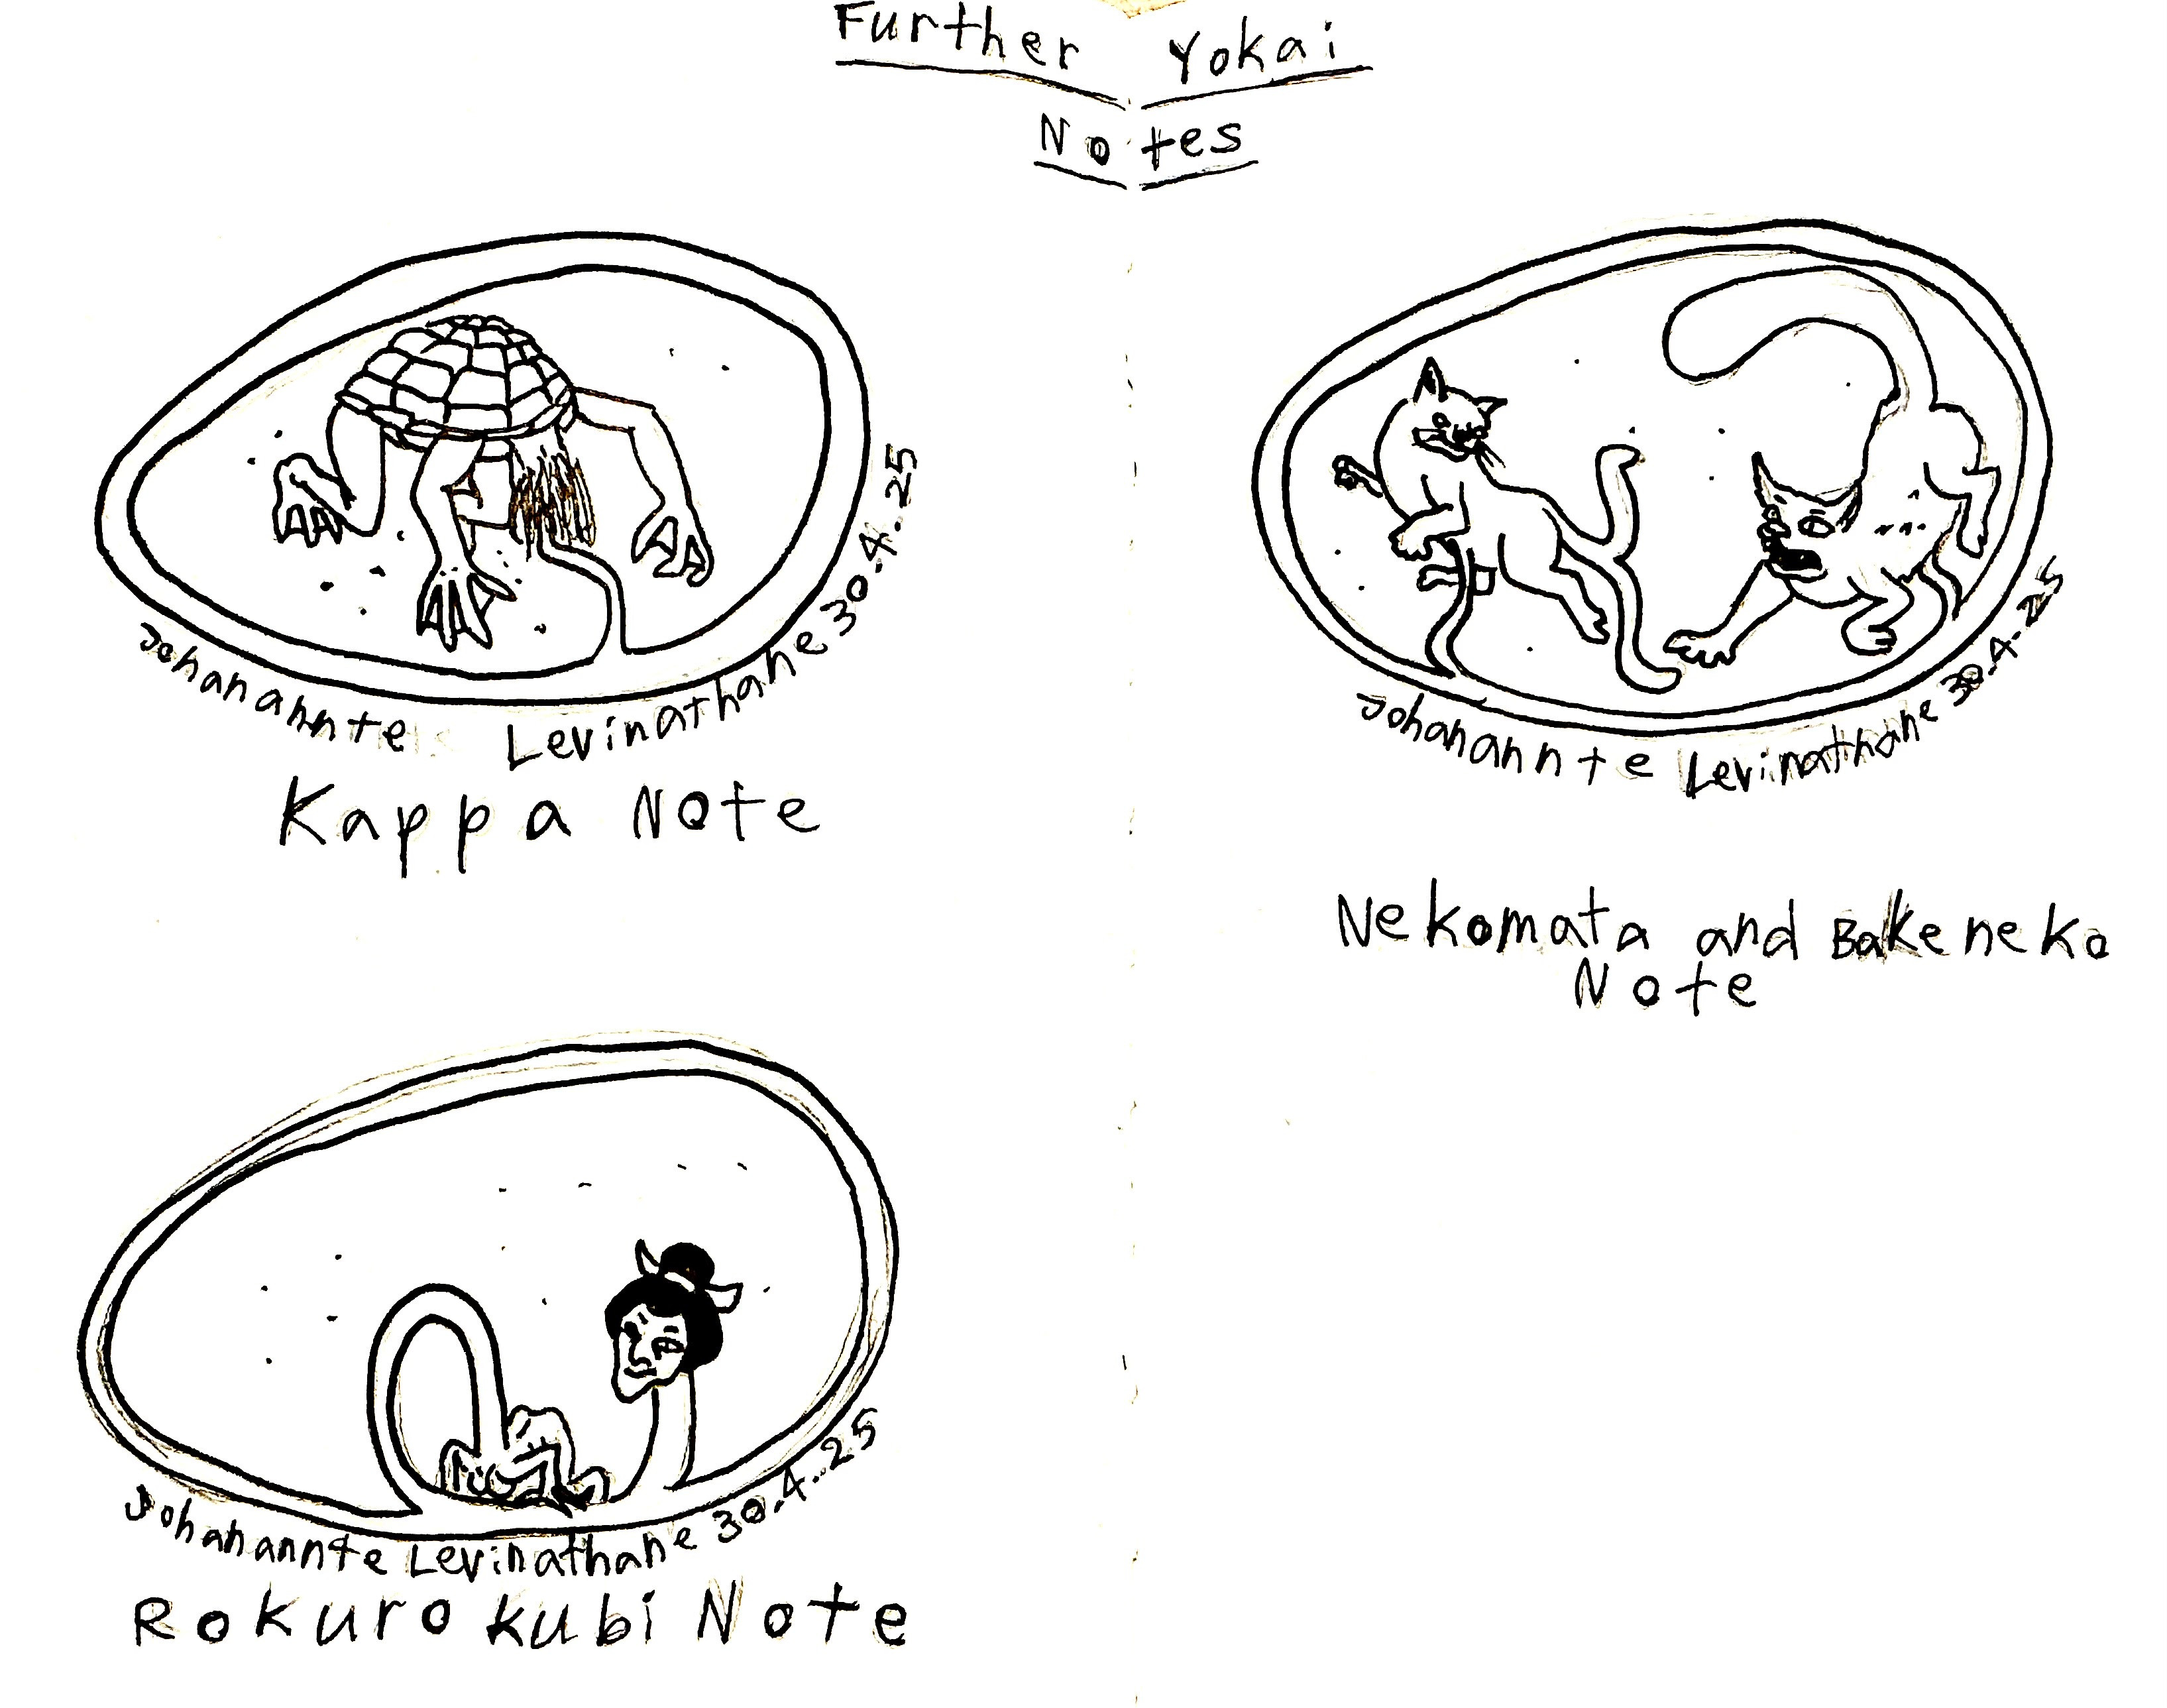 Further Yokai
Notes
Johanannte Levinathane 30.4.25
Kappa Note
Johanannte Levinathane 30.4.25
Nekomata and Bakeneko
Note
Johanannte Levinathane 30.4.25
Rokurokubi Note